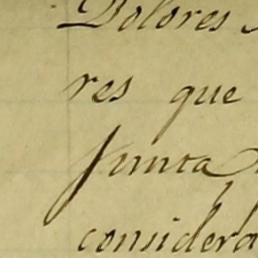 Dolores
res que
Junta
considera